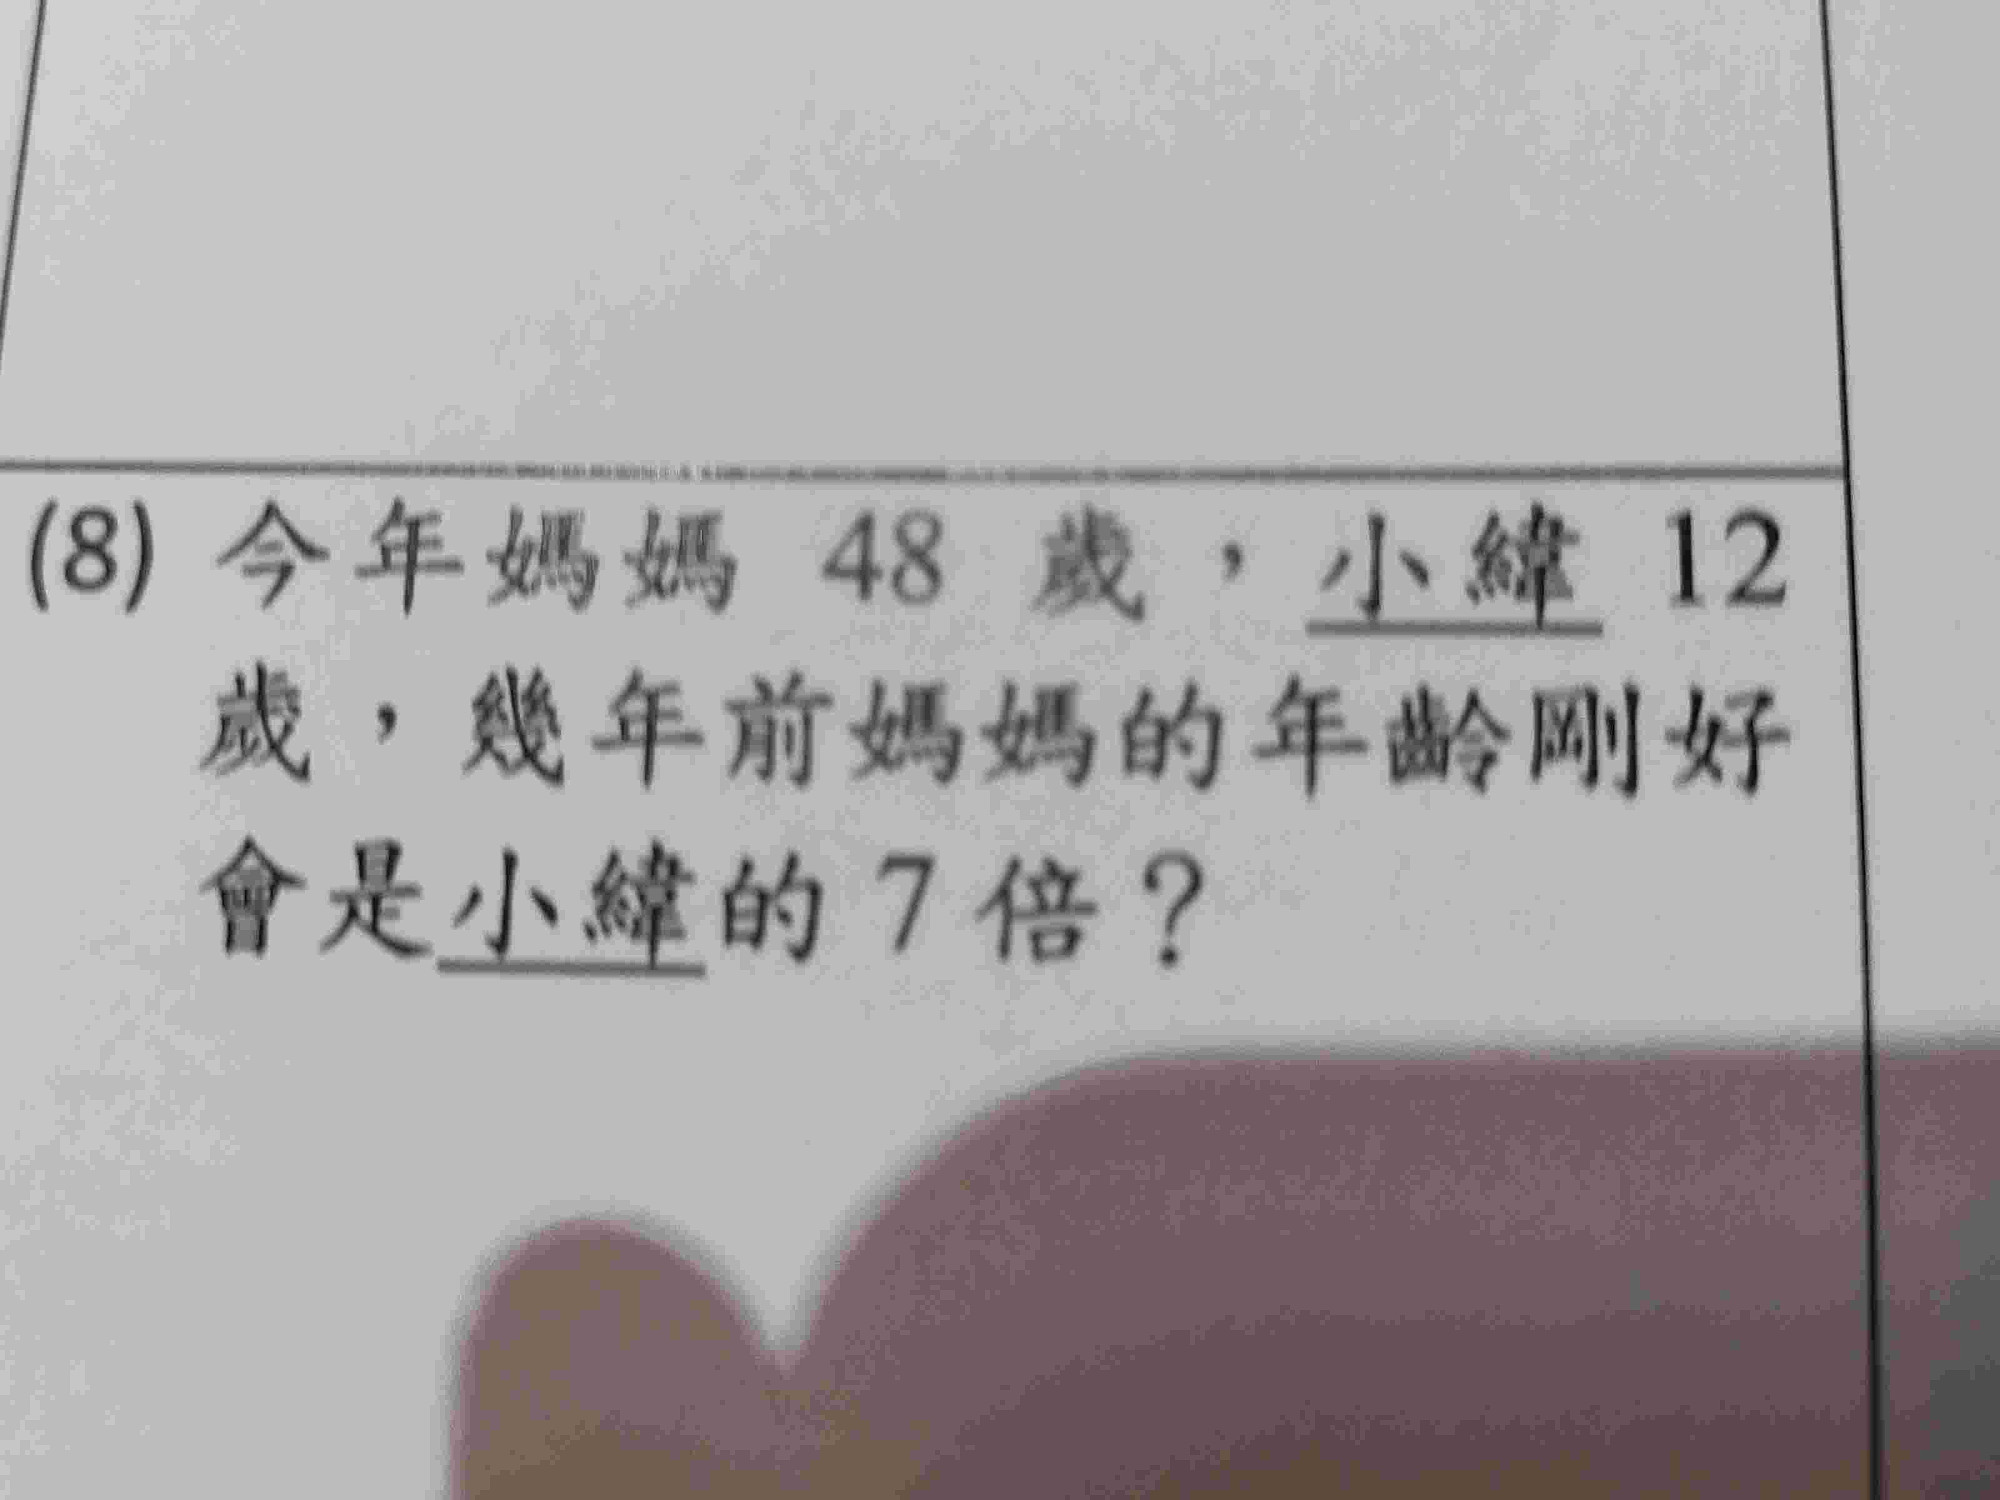 (8) 今年媽媽 48 歲，小緯 12
歲，幾年前媽媽的年齡剛好
會是小緯的 7 倍？